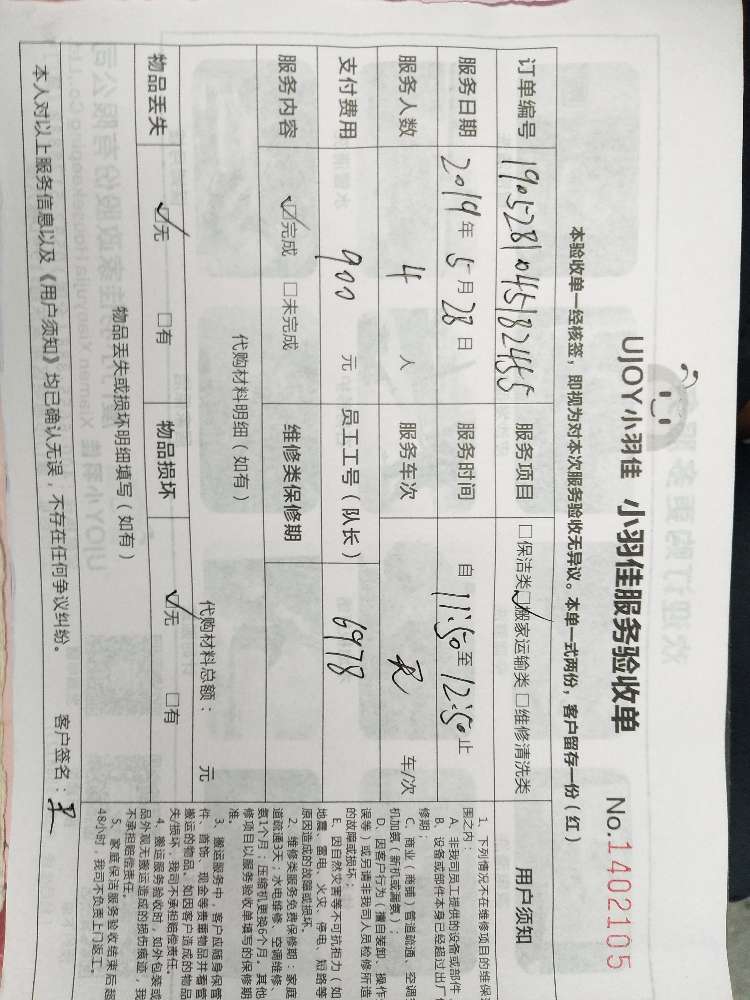 UJOY小羽佳 小羽佳服务验收单 No.1402105
本验收单一经核签，即视为对本次服务验收无异议。本单一式两份，客户留存一份（红）
订单编号 1905281045182455 服务项目 □保洁类☑搬家运输类□维修清洗类
服务日期 2019年5月28日 服务时间 自11:50至12:50止
服务人数 4人 服务车次 车/次
支付费用 900元 员工工号（队长） 6978
服务内容 ☑完成 □未完成 维修类保修期
代购材料明细（如有） 代购材料总额： 元
物品丢失 ☑无 □有 物品损坏 ☑无 □有
物品丢失或损坏明细填写（如有）
本人对以上服务信息以及《用户须知》均已确认无误，不存在任何争议纠纷。 客户签名：
用户须知
1、下列情况不在维修项目的维保
围之内：
A、非我司员工提供的设备或部件
B、设备或部件本身已经超过出厂
修期；
C、商业（商铺）管道疏通、空调
机加氨（新机或漏氨）；
D、因客户行为（擅自装卸、操作
误等）或另请非我司人员检修所造
的故障或损坏；
E、因自然灾害等不可抗拒力（如
地震、雷电、火灾、停电、短路等
原因造成的故障或损坏。
2、维修类服务免费保修期：家庭
道疏通3天；水电维修、空调维修、
氨1个月；压缩机更换6个月。其他
修项目以服务验收单填写的保修期
准。
3、搬运服务中，客户应随身保管
件、首饰、现金等贵重物品并看管
搬运的物品，如因客户造成的物品
失/损坏，我司不承担赔偿责任。
4、搬运服务验收时，如外包装或
品外观无搬运造成的损伤痕迹，我
不承担赔偿责任。
5、家庭保洁服务验收结束后超
48小时，我司不负责上门返工。